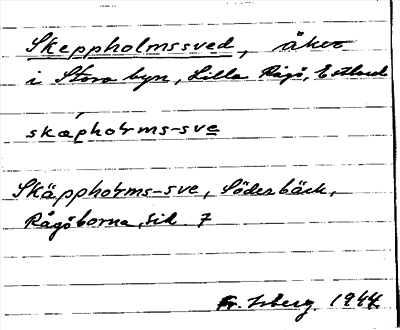 Skeppholmssved, åker
i Stora byn, Lilla Rågö, Estland
skapholms-sve
Skäppholms-sve, Söderbäck,
Rågöborna, sid. 7
Fr. Isberg. 1944